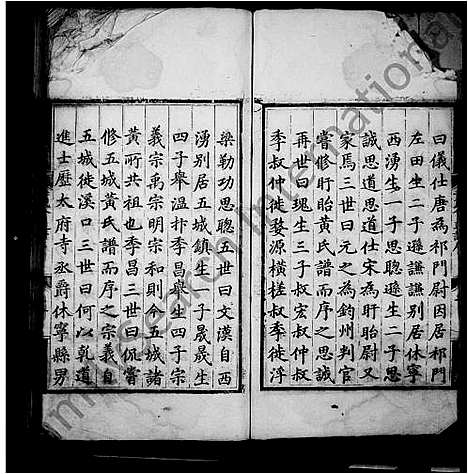 曰儀仕唐為祁門尉因居祁門
左田生二子遜謙謙別居休寧
西湧生一子思聰遜生二子思
誠思道思道仕宋為盱眙尉又
家焉三世曰元之為鈞州判官
嘗修盱眙黃氏譜而序之思誠
再世曰瑰生三子叔宏叔仲叔
季叔仲徙婺源橫槎叔季徙浮
梁勒功思聰五世曰文漢自西
湧別居五城鎮生一子晟晟生
四子舉溫抃李昌舉生四子宗
義宗禹宗明宗和則今五城諸
黃所共祖也李昌三世曰侃嘗
修五城黃氏譜而序之宗義自
五城徙溪口三世曰何以乾道
進士歷太府寺丞爵休寧縣男